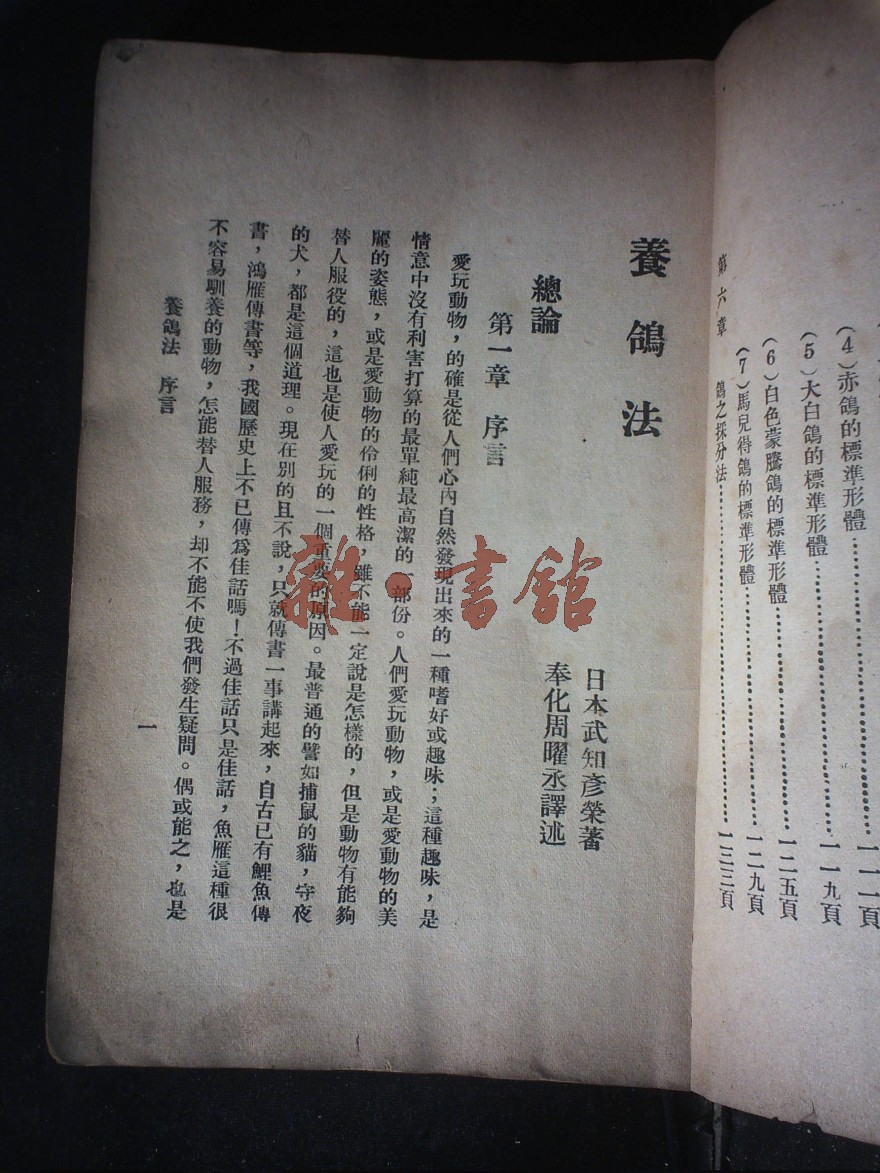 (4)赤鴿的標準形體……………一一一頁
(5)大白鴿的標準形體……………一一九頁
(6)白色蒙騰鴿的標準形體……………一二五頁
(7)馬兒得鴿的標準形體……………一二九頁
第六章 鴿之採分法……………一三三頁
養鴿法
日本武知彥榮著
奉化周曜丞譯述
總論
第一章 序言
愛玩動物,的確是從人們心內自然發現出來的一種嗜好或趣味;這種趣味,是
情意中沒有利害打算的最單純最高潔的一部份。人們愛玩動物,或是愛動物的美
麗的姿態,或是愛動物的伶俐的性格,雖不能一定說是怎樣的,但是動物有能夠
替人服役的,這也是使人愛玩的一個重要的原因。最普通的譬如捕鼠的貓,守夜
的犬,都是這個道理。現在別的且不說,只就傳書一事講起來,自古已有鯉魚傳
書,鴻雁傳書等,我國歷史上不已傳為佳話嗎!不過佳話只是佳話,魚雁這種很
不容易馴養的動物,怎能替人服務,却不能不使我們發生疑問。偶或能之,也是
養鴿法 序言
一
雜·書館